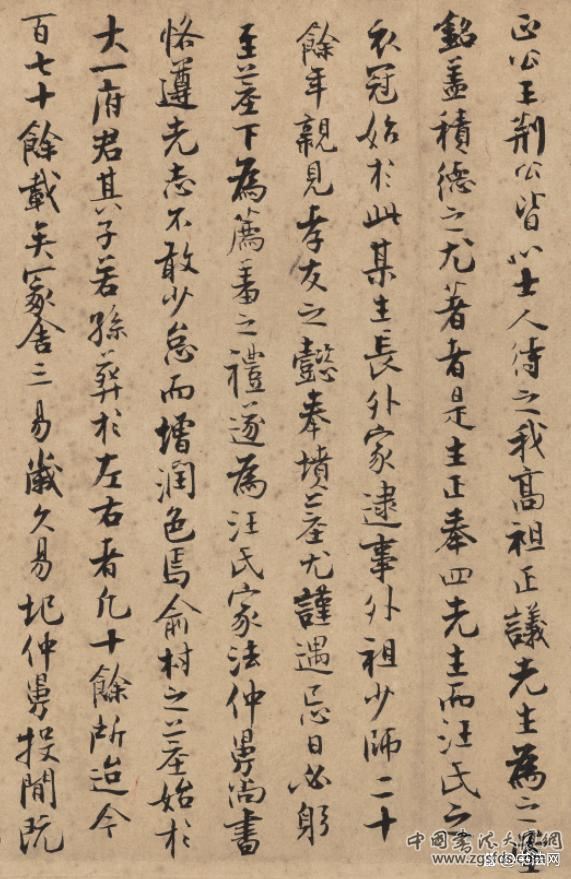 正公王荆公皆以士人待之我高祖正議先生為之墓
銘盖積德之尤著者是生正奉四先生而汪氏之
衣冠始於此某生長外家逮事外祖少師二十
餘年親見孝友之懿奉墳墓尤謹遇忌日必躬
至墓下為薦羞之禮遂為汪氏家法仲舅尚書
恪遵先志不敢少怠而增潤色焉俞村之墓始於
大一府君其子若孫葬於左右者凡十餘所迨今
百七十餘載矣冢舍三易歲久易圮仲舅投閒既
中国書法大家網
www.zgsfds.com